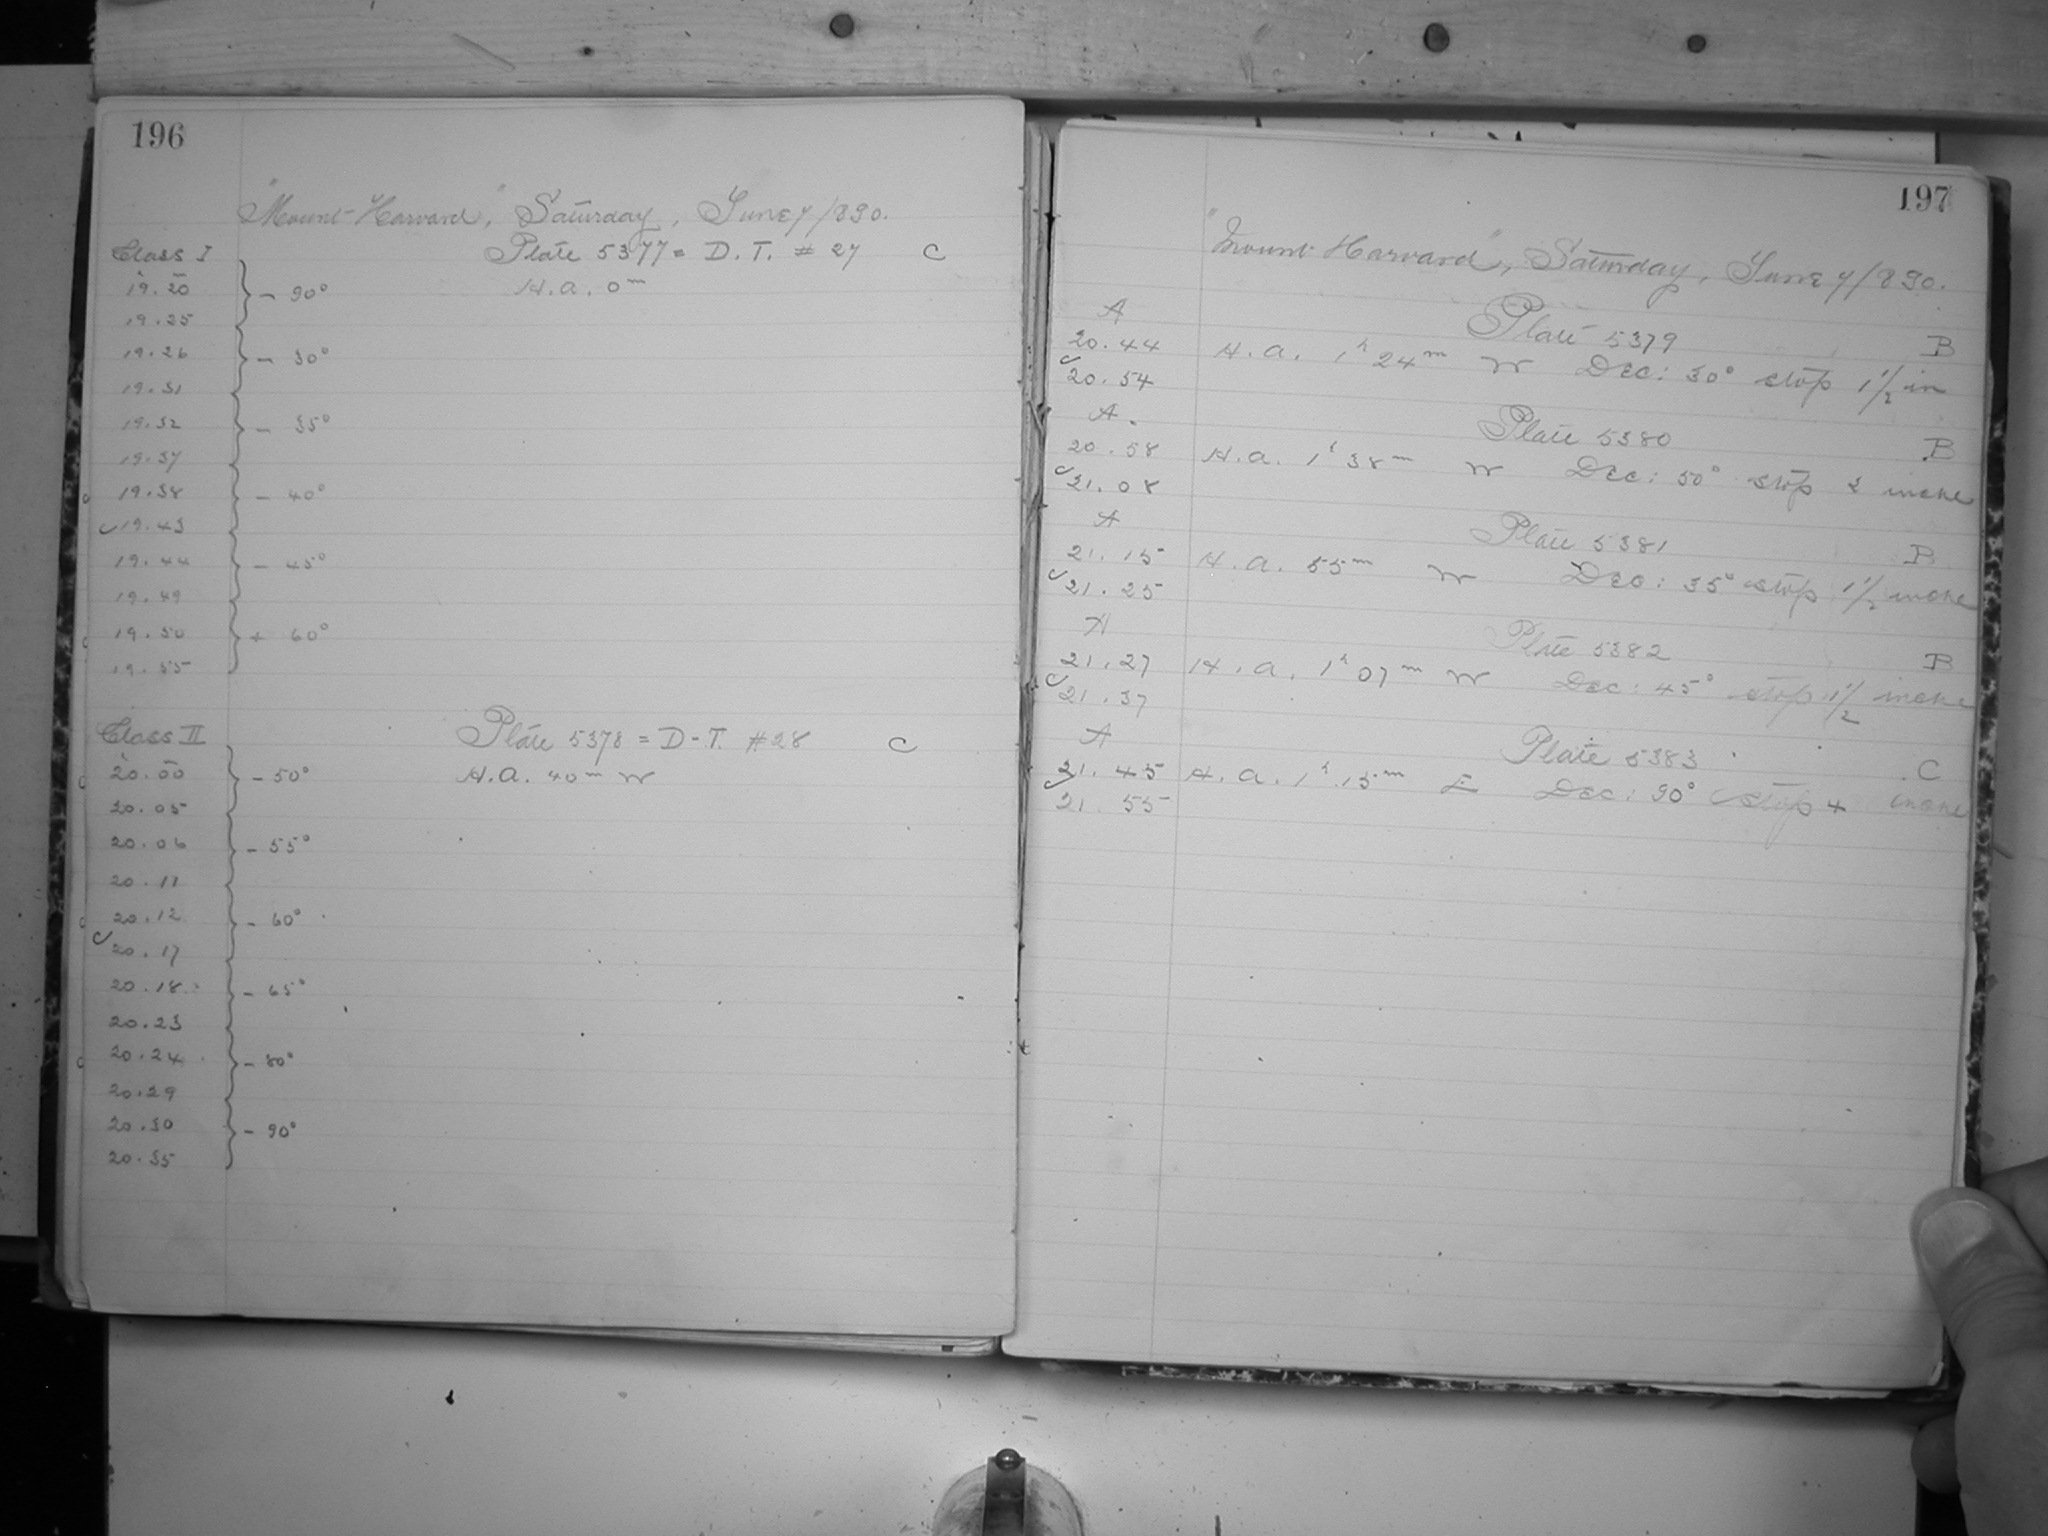 196
"Mount Harvard", Saturday, June 7/890.
Class I Plate 5377 = D. T. # 27 C
19.20 - 90° H.a. 0m
19.25
19.26 - 30°
19.31
19.32 - 35°
19.37
19.38 - 40°
19.43
19.44 - 45°
19.49
19.50 + 60°
19.55
Class II Plate 5378 = D-T. #28 C
20.00 - 50° H.a. 40m W
20.05
20.06 - 55°
20.11
20.12 - 60°
20.17
20.18 - 65°
20.23
20.24 - 80°
20.29
20.30 - 90°
20.35
197
"Mount Harvard", Saturday, June 7/890.
A Plate 5379 B
20.44 H.a. 1h 24m W Dec: 30° stop 1 1/2 in
20.54
A. Plate 5380 B
20.58 H.a. 1h 38m W Dec: 50° stop 2 inche
21.08
A Plate 5381 B
21.15 H.a. 55m W Dec: 35° stop 1 1/2 inche
21.25
A Plate 5382 B
21.27 H.a. 1h 07m W Dec: 45° stop 1 1/2 inche
21.37
A Plate 5383 C
21.45 H.a. 1h 15m E Dec: 90° stop 4 inche
21.55